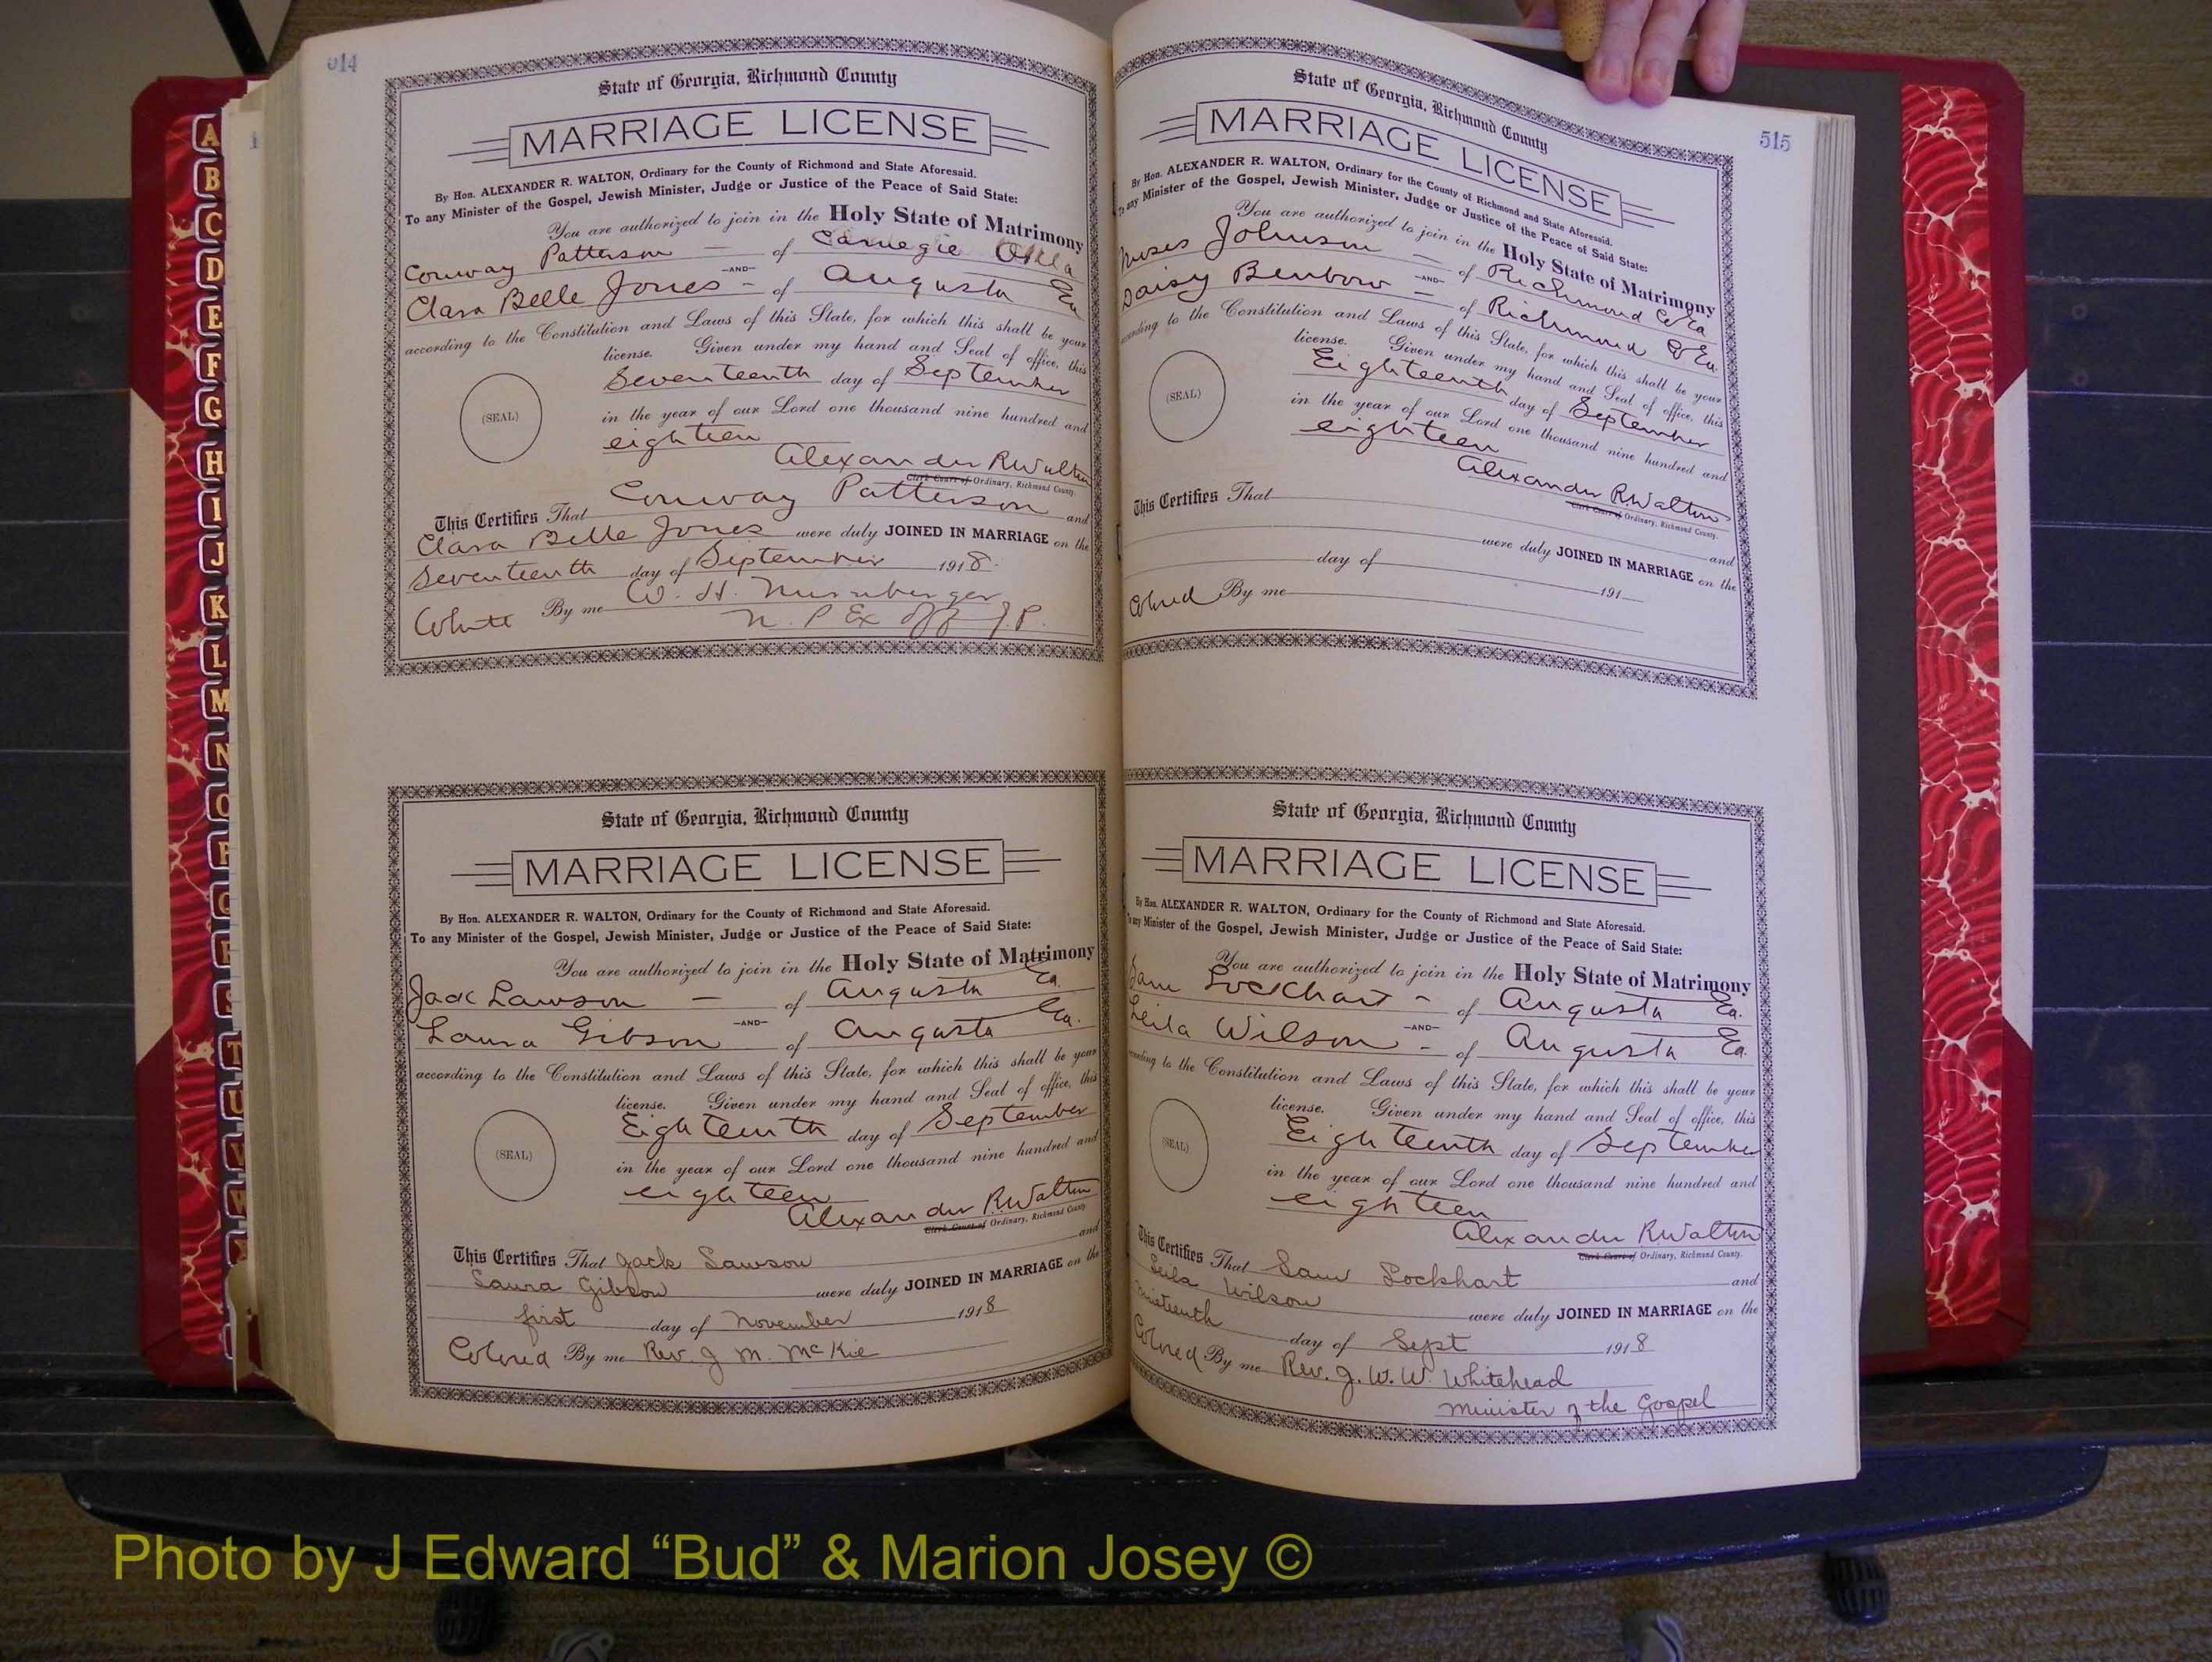 514
State of Georgia, Richmond County
MARRIAGE LICENSE
By Hon. ALEXANDER R. WALTON, Ordinary for the County of Richmond and State Aforesaid.
To any Minister of the Gospel, Jewish Minister, Judge or Justice of the Peace of Said State:
You are authorized to join in the Holy State of Matrimony
Conway Patterson — of Carnegie Okla
—AND—
Clara Belle Jones - of Augusta Ga
according to the Constitution and Laws of this State, for which this shall be your
license. Given under my hand and Seal of office, this
(SEAL)
Seventeenth day of September
in the year of our Lord one thousand nine hundred and
eighteen
Alexander R Walton
Clerk Court of Ordinary, Richmond County.
This Certifies That Conway Patterson and
Clara Belle Jones were duly JOINED IN MARRIAGE on the
Seventeenth day of September 1918.
White By me W. H. Nurnberger
N. P Ex off J.P.
State of Georgia, Richmond County
MARRIAGE LICENSE
By Hon. ALEXANDER R. WALTON, Ordinary for the County of Richmond and State Aforesaid.
To any Minister of the Gospel, Jewish Minister, Judge or Justice of the Peace of Said State:
You are authorized to join in the Holy State of Matrimony
Jack Lawson — of Augusta Ga.
—AND—
Laura Gibson of Augusta Ga.
according to the Constitution and Laws of this State, for which this shall be your
license. Given under my hand and Seal of office, this
(SEAL)
Eighteenth day of September
in the year of our Lord one thousand nine hundred and
eighteen
Alexander R Walton
Clerk Court of Ordinary, Richmond County
This Certifies That Jack Lawson and
Laura Gibson were duly JOINED IN MARRIAGE on the
first day of November 1918
Colored By me Rev. J M. McKie
515
State of Georgia, Richmond County
MARRIAGE LICENSE
By Hon. ALEXANDER R. WALTON, Ordinary for the County of Richmond and State Aforesaid.
To any Minister of the Gospel, Jewish Minister, Judge or Justice of the Peace of Said State:
You are authorized to join in the Holy State of Matrimony
Moses Johnson — of Richmond Co Ga
—AND—
Daisy Benbow — of Richmond Co Ga.
according to the Constitution and Laws of this State, for which this shall be your
license. Given under my hand and Seal of office, this
(SEAL)
Eighteenth day of September
in the year of our Lord one thousand nine hundred and
eighteen
Alexander R Walton
Clerk Court of Ordinary, Richmond County.
This Certifies That and
were duly JOINED IN MARRIAGE on the
day of 191
Colored By me
State of Georgia, Richmond County
MARRIAGE LICENSE
By Hon. ALEXANDER R. WALTON, Ordinary for the County of Richmond and State Aforesaid.
To any Minister of the Gospel, Jewish Minister, Judge or Justice of the Peace of Said State:
You are authorized to join in the Holy State of Matrimony
Sam Lockhart - of Augusta Ga.
—AND—
Leila Wilson - of Augusta Ga.
according to the Constitution and Laws of this State, for which this shall be your
license. Given under my hand and Seal of office, this
(SEAL)
Eighteenth day of September
in the year of our Lord one thousand nine hundred and
eighteen
Alexander R Walton
Clerk Court of Ordinary, Richmond County.
This Certifies That Sam Lockhart and
Wilson were duly JOINED IN MARRIAGE on the
nineteenth day of Sept 1918
Colored By me Rev. J. W. W. Whitehead
Minister of the Gospel
A
B
C
D
E
F
G
H
I
J
K
L
M
N
O
P
Q
R
S
T
U
V
W
Photo by J Edward “Bud” & Marion Josey ©